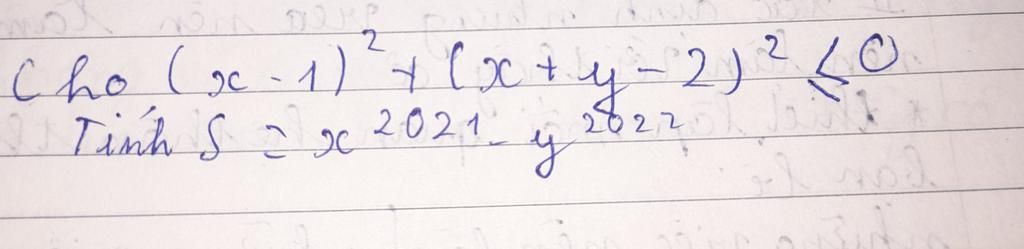 Cho (x - 1)² + (x + y - 2)² ≤ 0
Tính S = x²⁰²¹ - y²⁰²²